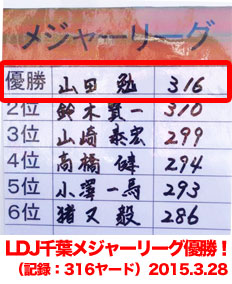 メジャーリーグ
優勝 山田 勉 316
2位 鈴木賢一 310
3位 山崎泰宏 299
4位 高橋 健 294
5位 小澤一馬 293
6位 猪又 毅 286
LDJ千葉メジャーリーグ優勝！
（記録：316ヤード）2015.3.28